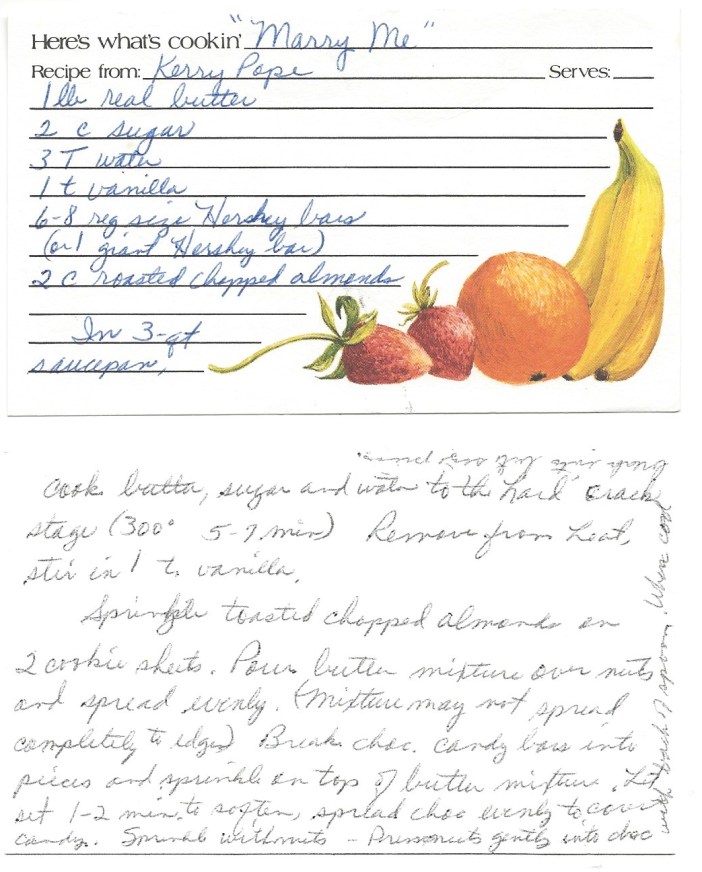 Here's what's cookin' "Marry Me"
Recipe from: Kerry Pope Serves:
1 lb real butter
2 c sugar
3 T water
1 t vanilla
6-8 reg size Hershey bars
(or 1 giant Hershey bar)
2 c roasted chopped almonds
In 3-qt
saucepan,
cook butter, sugar and water to the hard crack
stage (300° 5-7 min) Remove from heat,
stir in 1 t. vanilla.
Sprinkle toasted chopped almonds on
2 cookie sheets. Pour butter mixture over nuts
and spread evenly. (Mixture may not spread
completely to edges) Break choc. candy bars into
pieces and sprinkle on top of butter mixture. Let
set 1-2 min. to soften, spread choc evenly to cover
candy. Sprinkle with nuts - Press nuts gently into choc
with back of spoon. When cool
break into bite size pieces.